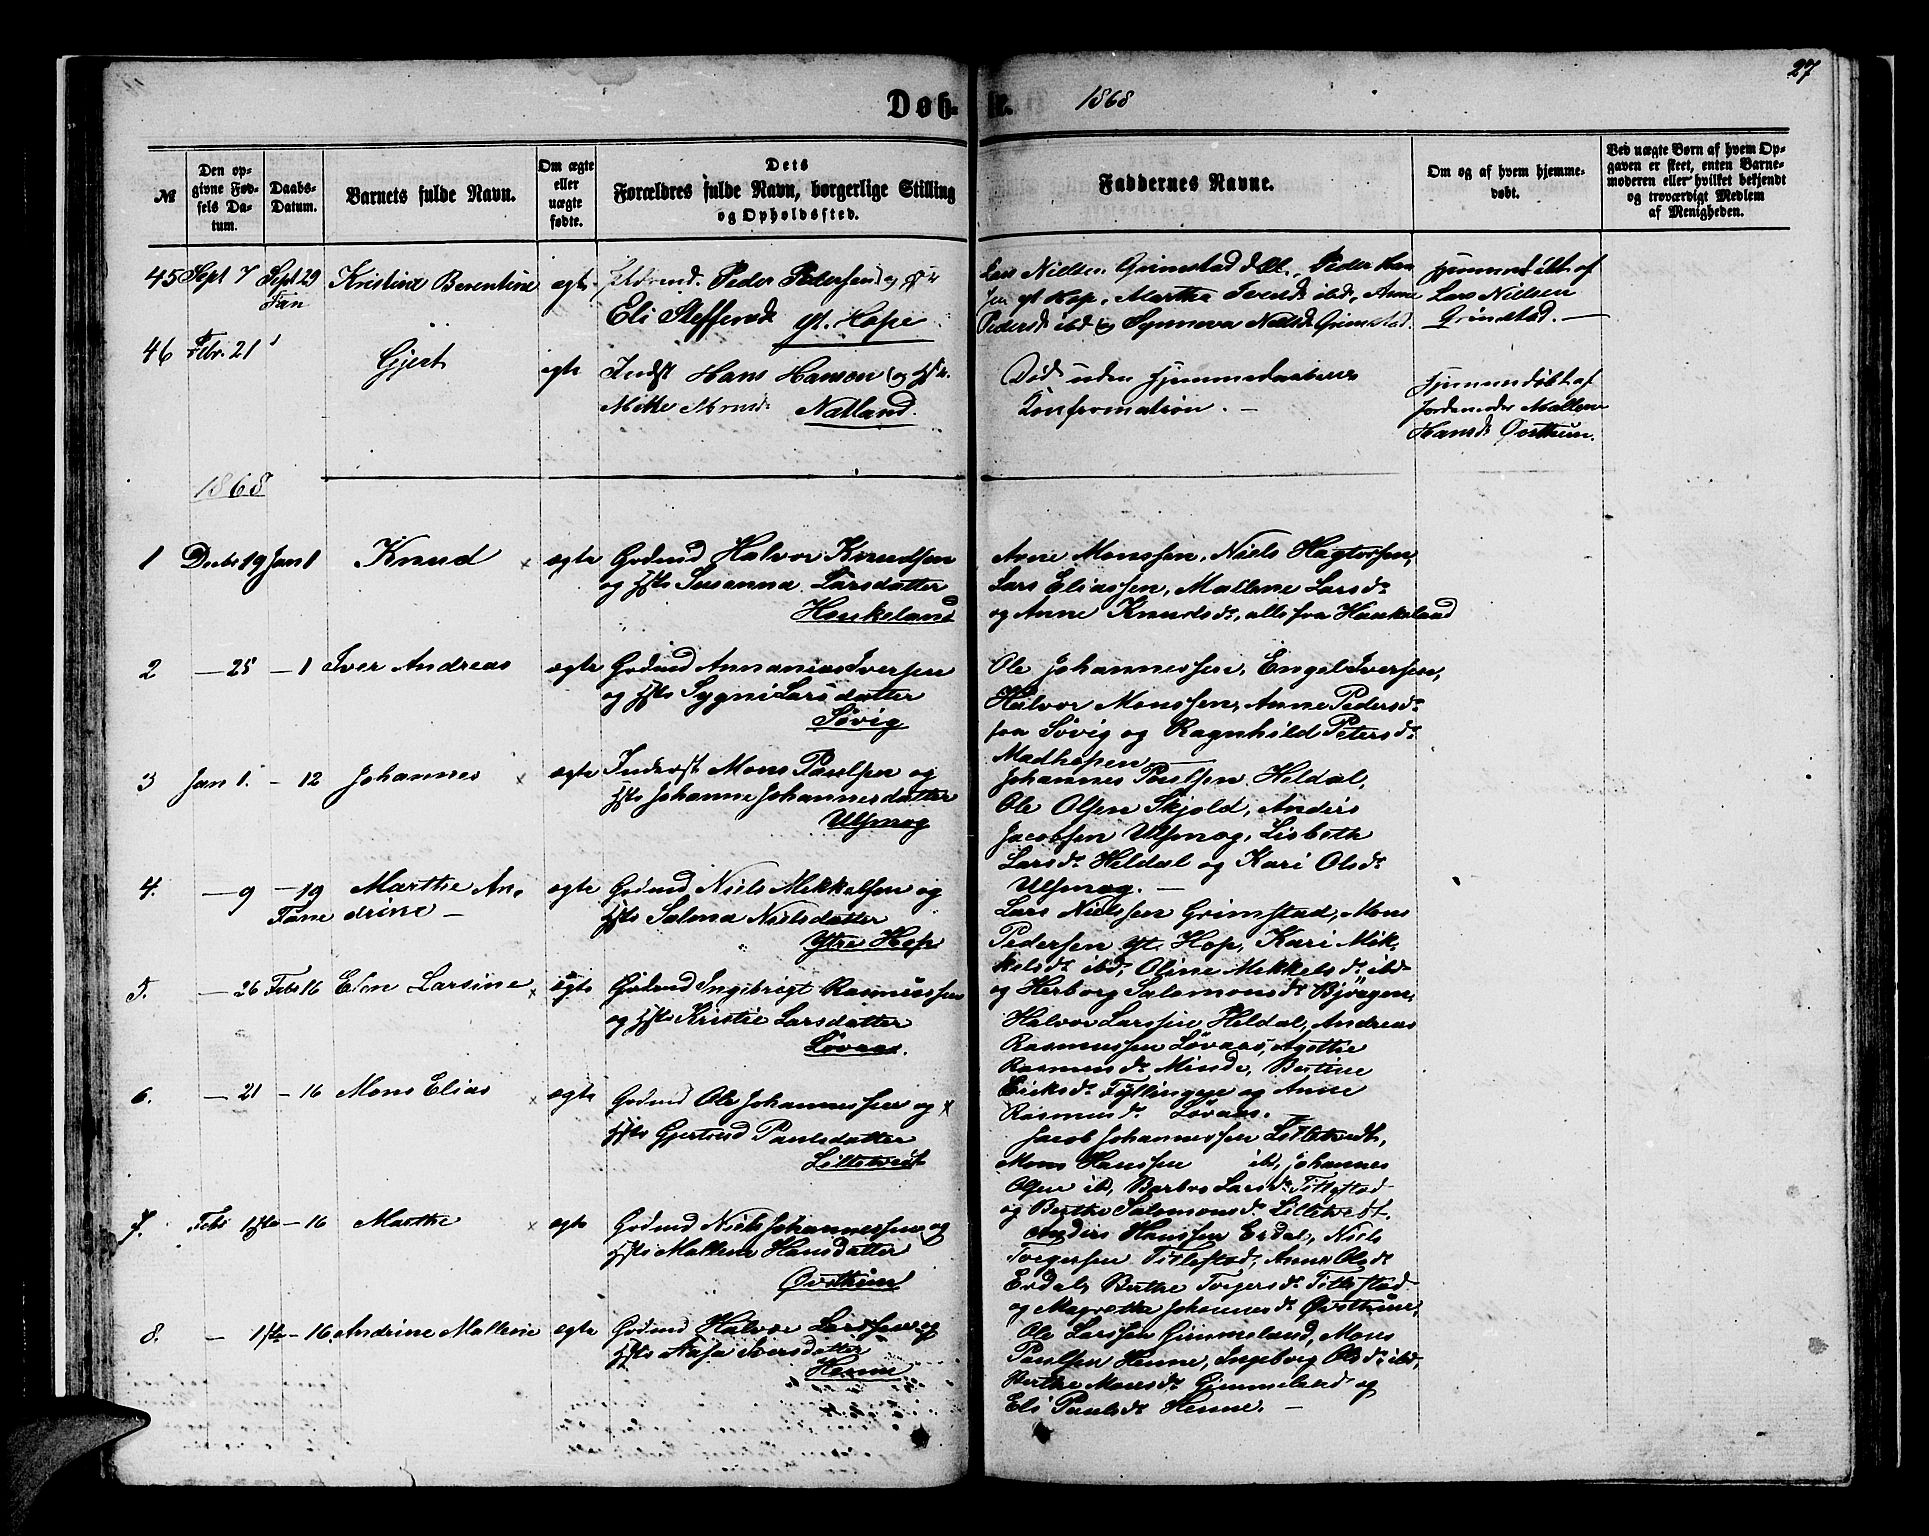 27
Døb- te. 1868
№
Den op-
givne Fød-
sels Da-
tum.
Daabs-
Datum.
Barnets fulde Navn.
Om ægte
eller
uægte
fødte.
Dets
Forældres fulde Navn, borgerlige Stilling
og Opholdssted.
Faddernes Navne.
Om og af hvem hjemme-
døbt.
Ved uægte Børn af hvem Op-
gaven er skeet, enten Barne-
moderen eller hvilket bekjendt
og troværdigt Medlem
af Menigheden.
45 Sept 7 Sept 29 Kristine Berentine ægte Peder Pedersen og
Fan
Eli Steffensd. yt. Hope
Lars Nielsen Grimestad
yt Hop, Martha ibd., Anne
Pedersd. ibd og Synneva Nielsd. Grimstad.
Hjemmedøbt af
Lars Nielsen
Grimstad. —
46 Febr. 21 Gjert ægte Inderst Hans Hanson og
Mette Monsd. Natland.
Død uden Hjemmedaabens
Konfirmation. —
Hjemmedøbt af
Jordemoder Mallene
Hansd. Øvsthun.
1868
1 Decbr 19 Jan 1 Knud ægte Gødmd Halvor Knudsen
og Hst. Susanna Larsdatter
Haukeland
Arne Monssen, Niels Hagtorsen,
Lars Eliassen, Mallene Larsd.
og Anne Knudsd., alle fra Haukeland
2 — 25 — 1 Iver Andreas ægte Gødmd Annanias Iversen
og Hst. Sygni Larsdatter
Søvig
Ole Johannessen, Engel Iversen,
Halvor Monssen, Anne Pedersd.
fra Søvig og Ragnhild Petersd.
Madhopen —
3 Jan 1. — 12 Johannes ægte Inderst Mons Paulsen og
Hst. Johanne Johannesdatter
Ulsmog
Johannes Paulsen Heldal,
Ole Olsen Skjold, Anders
Jacobsen Ulsmog, Lisbeth
Larsd. Heldal og Kari Olsd.
Ulsmog. —
4. — 9 — 19 Marthe An- ægte Gødmd Niels Mikkelsen og
Fane drine —
Hst. Salmd Nielsdatter
Ytre Hop
Lars Nielssen Grimstad, Mons
Pedersen yt. Hop, Kari Mik-
kelsd. ibd, Oline Mekkelsd. ibd
og Herborg Salomonsd. Bjørgen.
5. — 26 Feb 16 Elen Larsine ægte Gødmd Ingebrigt Rasmussen
og Hst. Kristie Larsdatter
Løvaas.
Halvor Larssen Heldal, Andreas
Rasmussen Løvaas, Agathe
Rasmusd. Minde, Bertine
Eriksd. Fyllingen og Anne
Rasmusd. Løvaas.
6. — 21 — 16 Mons Elias ægte Gødmd Ole Johannessen og
Hst. Gjertrud Paulsdatter
Lilletvedt
Jacob Johannessen Litletvedt,
Mons Hanssen ibd, Johannes
Olsen ibd, Barbro Larsd. Titlestad
og Berthe Salomonsd. Lilletvedt.
7. Feb 1ste — 16 Marthe ægte Gødmd Niels Johannessen og
Hst. Mallene Hansdatter
Øvsthun
Anders Hanssen Erdal, Niels
Torgersen Titlestad, Anne Olsd.
Erdal, Berthe Torgersd. Titlestad
og Magretha Johannesd. Øvsthun,
8. — 1ste — 16. Andrine Mallene ægte Gødmd Halvor Larssen og
Hst. Aasa Iversdatter
Henne
Ole Larssen Gimmeland, Mons
Paulsen Henne, Ingebrig Olsd. ibd,
Berthe Monsd. Gimmeland og
Eli Paulsd. Henne. —